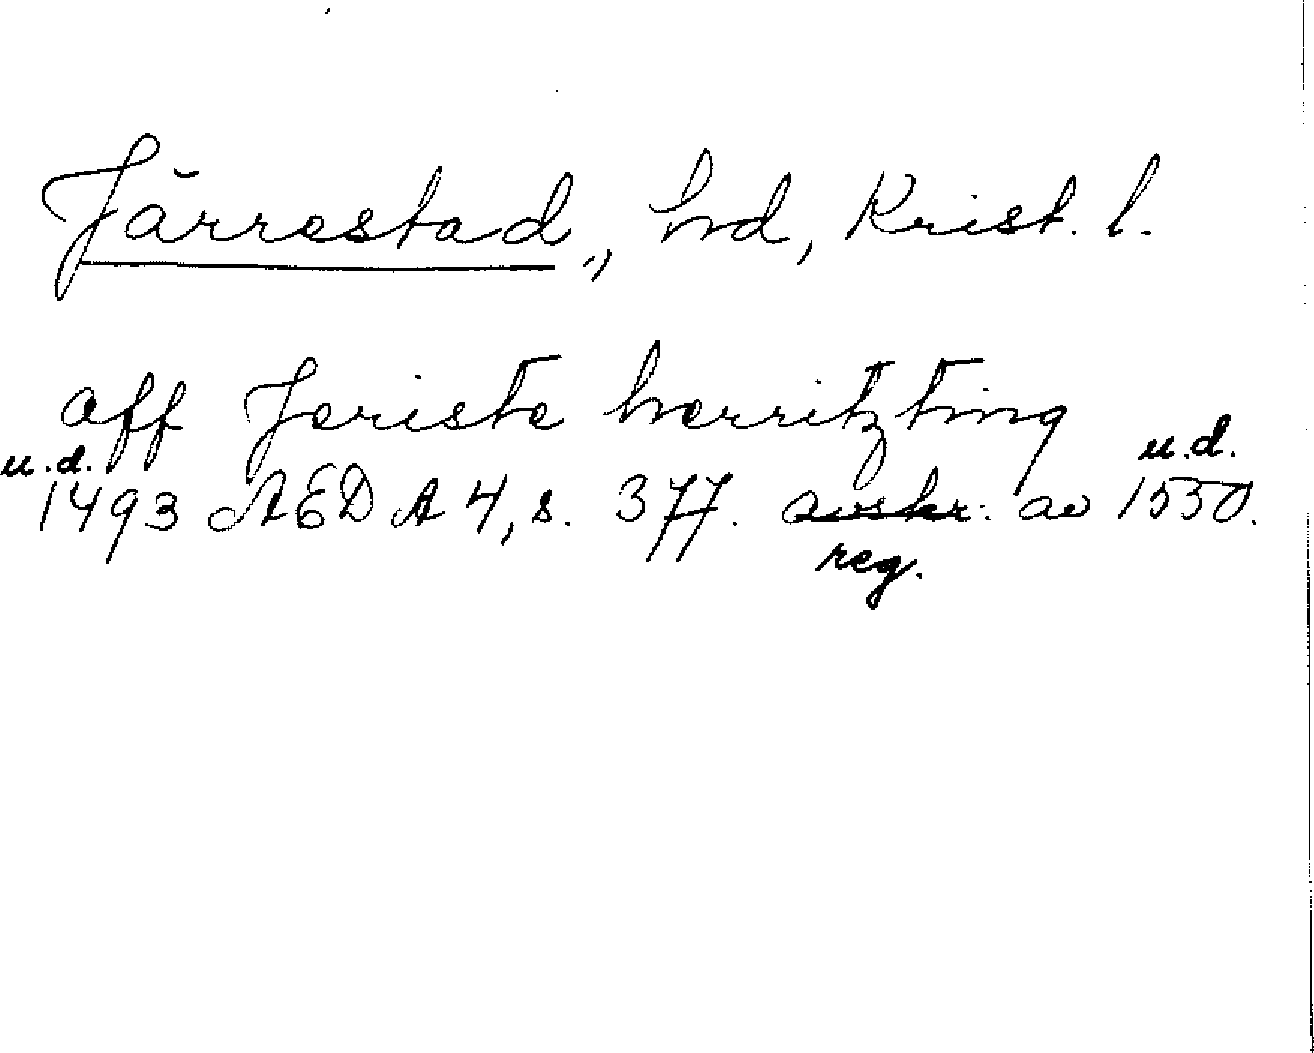 Järrestad, hd, Krist. l.
aff Jeriste herritzting
u.d. u.d.
1493 ÆDA A 4, s. 377. avskr. av 1550.
reg.